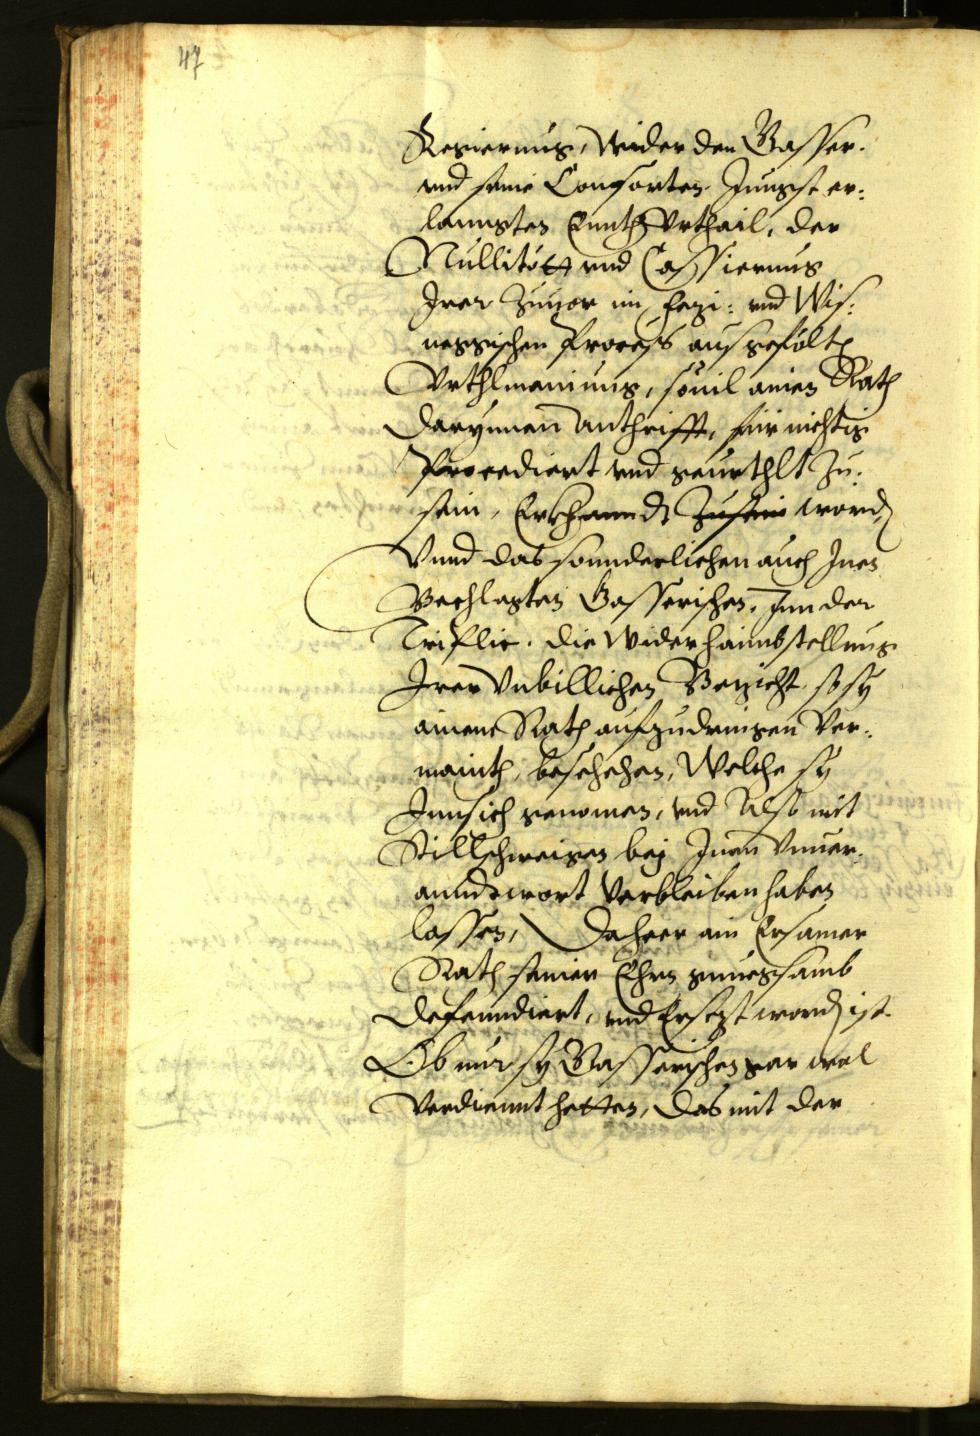 47
Regierung, Wider den Gasser.
und seine Consorten Jungst er:
lanngten Ennth Urthail, der
Nullitött und Cassierung
Irer Zuuor im Hezi: und Wis:
neggischen Process aus gefölte
Urthlmainung, souil ainen Rath
Darynnen Anthrifft, für nichtig
Procediert und geurthlt Zu
sein, Erkhanndt worden
Unnd das sonnderlichen auch Inen
Bechlagten Gasserischen, Inn der
Triplic. die Widerhaimbstellung
Irer Unbillichen Bezicht, so sy
ainem Rath aufzudringen Ver:
mainth, beschehen, Welche sy
Inn sich genomen, und Also mit
Stillschweigen bey Inen Unuer:
anndtwort Verbleiben haben
lassen, Daheer ain Ersamer
Rath seiner Ehrn gnuegsamb
defenndiert, und Ersezt worden ist.
Ob nur sy Gasserischen gar wol
Verdiennt hetten, das mit der